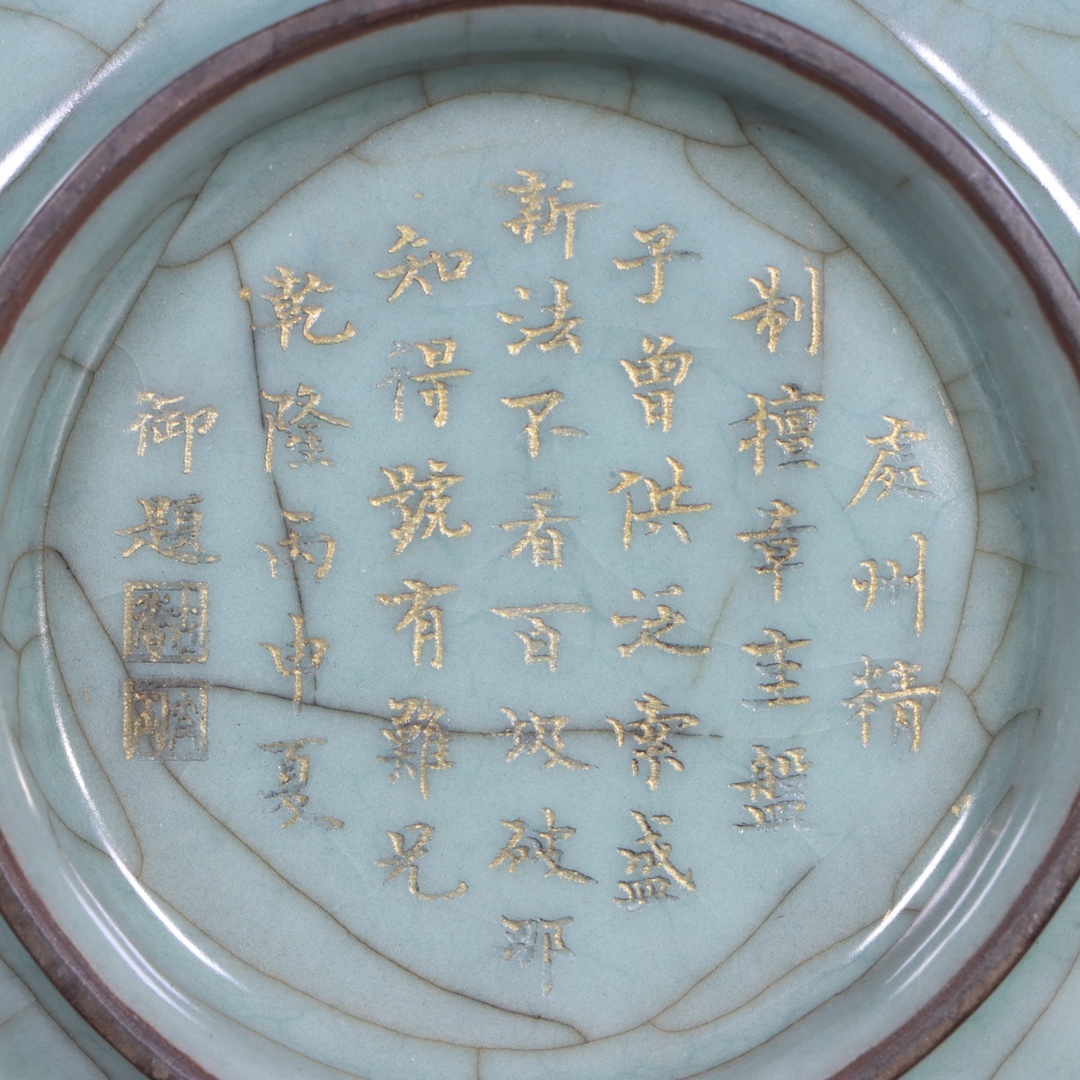 處州精
制擅章生盤
子曾供泛索盛
新法不看百圾破那
知得號有難兄
乾隆丙申夏
御題